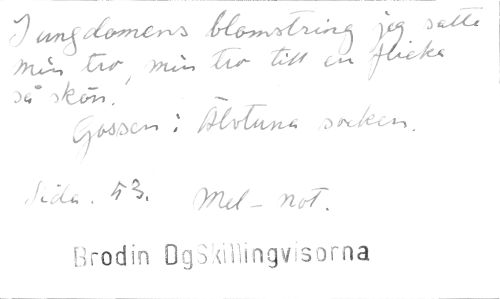 I ungdomens blomstring jag satte
min tro, min tro till en flicka
så skön.
Gossen i Älvtuna socken.
Sida. 53. Mel-not.
Brodin DgSkillingvisorna